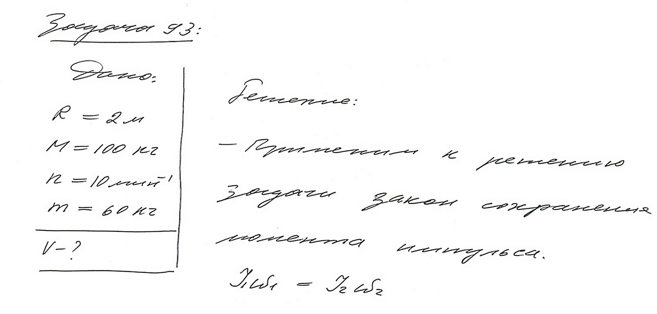 Задача 93:
Дано:
R = 2 м
M = 100 кг
n = 10 мин⁻¹
m = 60 кг
V - ?
Решение:
- Применим к решению
задачи закон сохранения
момента импульса.
J₁ω₁ = J₂ω₂